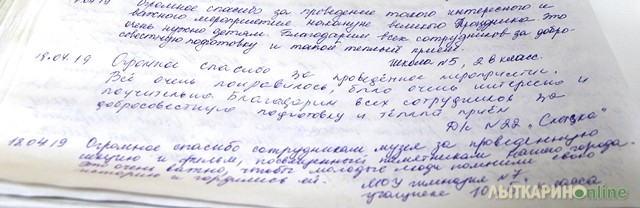 Огромное спасибо за проведение такого интересного и
важного мероприятия накануне великого Праздника. Это
очень нужно детям. Благодарим всех сотрудников за добро-
совестную подготовку и такой теплый прием.
Школа №5, 2 в класс.
18.04.19 Огромное спасибо за проведённое мероприятие.
Всё очень понравилось, было очень интересно и
поучительно. Благодарим всех сотрудников за
добросовестную подготовку и тёплый приём
Д/с №22 „Сказка"
18.04.19 Огромное спасибо сотрудникам музея за проведенную
лекцию и фильм, посвященный памятникам нашего города.
Это очень важно, чтобы молодые люди помнили свою
историю и гордились ей. МОУ гимназия №7
учащиеся 10 класса
ЛЫТКАРИНОonline